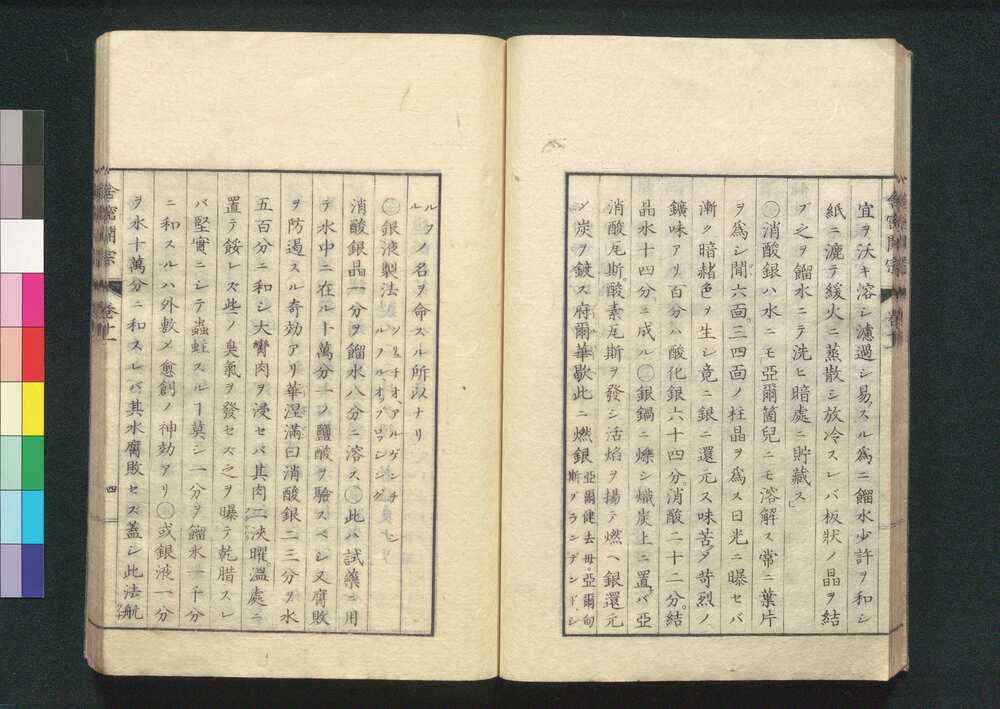 宜ヲ沃キ溶シ濾過シ易スル爲ニ餾水少許ヲ和シ
紙ニ漉テ緩火ニ蒸散シ放冷スレバ板狀ノ晶ヲ結
ブ之ヲ餾水ニテ洗ヒ暗處ニ貯藏ス」
消酸銀ハ水ニモ亞爾箇兒ニモ溶解ス常ニ葉片
ヲ爲シ間六面三四面ノ柱晶ヲ爲ス日光ニ曝セバ
漸ク暗赭色ヲ生シ竟ニ銀ニ還元ス味苦ク苛烈ノ
鑛味アリ百分ハ酸化銀六十四分消酸二十二分。結
晶水十四分ニ成ル㊁銀鍋ニ爍シ熾炭上ニ置バ亞
消酸瓦斯酸素瓦斯ヲ發シ活焰ヲ揚テ燃ヘ銀還元
シ炭ヲ鍍ス府爾華歇此ニ燃銀亞爾健去母。亞爾旬
斯ブランデンドシ
ルフノ名ヲ命スル所以ナリ
ル
㊂銀液製法ソリュチオ、アルゲンチ
消酸銀晶一分ヲ餾水八分ニ溶ス此ハ試藥ニ用
テ水中ニ在ル十萬分一ノ鹽酸ヲ驗スベシ又腐敗
ヲ防遏スル奇効アリ華涅滿曰消酸銀二三分ヲ水
五百分ニ和シ大臠肉ヲ浸セバ其肉二浹曜。溫處ニ
置テ餒レズ些ノ臭氣ヲ發セズ之ヲ曝テ乾腊スレ
バ堅實ニシテ蟲蛀スルヿ莫シ一分ヲ餾水一千分
ニ和スルハ外敷メ愈創ノ神効アリ或銀液一分
ヲ水十萬分ニ和スレバ其水腐敗セズ蓋シ此法航
舎密開宗
卷十一
四